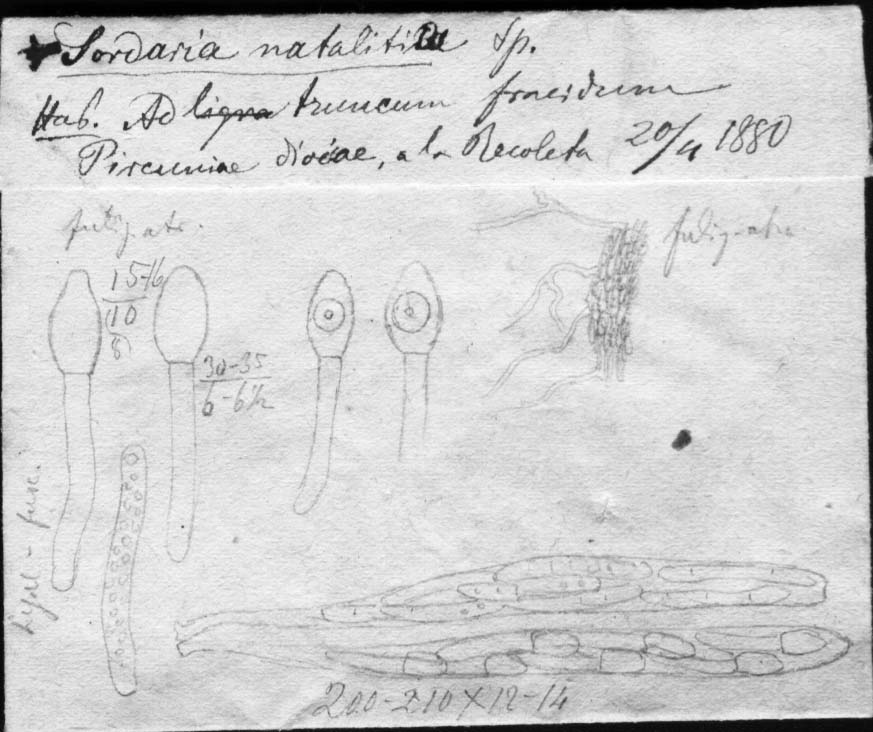 Sordaria natalitia Sp.
Hab. Ad ligna truncum fracidum
Pircuniae dioicae, a la Recoleta 20/4 1880
fulig-atr.
fulig-atra
15-16
10
8
30-35
6-6½
hyal-fusc.
200-210 X 12-14